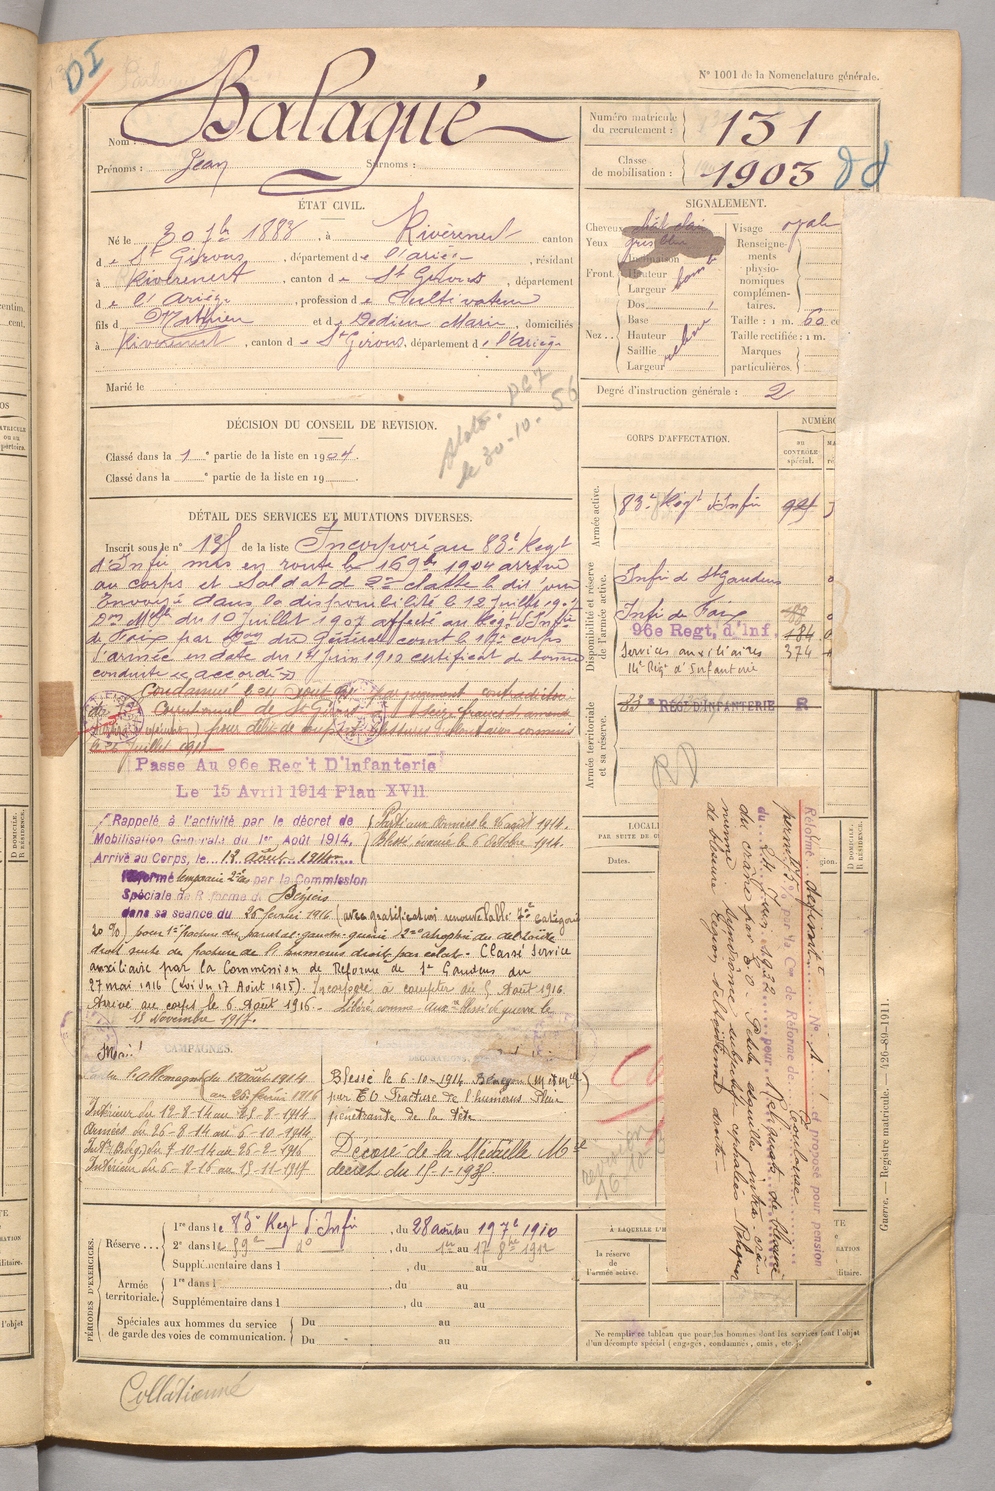 DI
N° 1001 de la Nomenclature générale.
Nom : Balagué
Prénoms : Jean Surnoms :
Numéro matricule du recrutement : 131
Classe de mobilisation : 1903
ÉTAT CIVIL.
Né le 30 7bre 1883, à Rivèrenert canton
de St Girons, département de l'ariège, résidant
à Rivèrenert, canton de St Girons, département
de l'Ariège, profession de Cultivateur
fils de Mathieu et de Dedieu Marie, domiciliés
à Rivèrenert, canton de St Girons, département de l'Ariège
Marié le
SIGNALEMENT.
Cheveux
Yeux
Front. Inclinaison
Hauteur
Largeur
Dos
Nez... Base
Hauteur
Saillie
Largeur
Visage ovale
Renseignements physionomiques complémentaires.
Taille : 1 m. 60 ce
Taille rectifiée : 1 m.
Marques particulières.
Degré d'instruction générale : 2
DÉCISION DU CONSEIL DE REVISION.
Classé dans la 1e partie de la liste en 1904.
Classé dans la e partie de la liste en 19
le 30-10-56
CORPS D'AFFECTATION.
NUMÉRO
AU CONTRÔLE spécial.
Armée active.
83e Regt d'Infie
Disponibilité et réserve de l'armée active.
Infie de St Gaudens
Infie de Foix
96e Regt, d'Inf. 484
Services auxiliaires 374
14e Regt d'Infanterie
Armée territoriale et sa réserve.
RÉGT D'INFANTERIE R
RD
DÉTAIL DES SERVICES ET MUTATIONS DIVERSES.
Inscrit sous le n° 135 de la liste Incorporé au 83e Regt
d'Infie mis en route le 16 9bre 1904 arrivé
au corps et Soldat de 2e classe le dit jour
Envoyé dans la disponibilité le 12 juillet 1907
Don Mlle du 10 juillet 1907 affecté au Regt d'Infie
de Foix par don du Général comt le 17e corps
d'armée en date du 14 juin 1910 certificat de bonne
conduite « accordé »
Condamné le par jugement contradictoire
Correctionnel de St Girons à seize francs d'amende
pour délit de coups et blessures volontaires commis
le juillet 1911
Passe Au 96e Reg't D'Infanterie
Le 15 Avril 1914 Plan XVII
Rappelé à l'activité par le décret de
Mobilisation Générale du 1er Août 1914.
Arrivé au Corps, le 12 août 1914
Parti aux Armées le 26 août 1914.
Blessé évacué le 6 octobre 1914.
Réformé temporaire 2e cl par la Commission
Spéciale de Réforme de Béziers
dans sa séance du 26 février 1916 (avec gratification renouvelable 7e catégorie
20 %) pour 1° fracture du pariétal gauche guérie 2° atrophie du deltoïde
droit suite de fracture de l'humérus droit par éclat. Classé Service
auxiliaire par la Commission de Réforme de St Gaudens du
27 mai 1916 (Loi du 17 Août 1915). Incorporé à compter du 5 Août 1916.
Arrivé au corps le 6 Août 1916. Libéré comme
13 Novembre 1917.
CAMPAGNES.
DÉCORATIONS,
Contre l'allemagne du 12 août 1914
au 26 février 1916
Intérieur du 12-8-14 au 25-8-1914
Armées du 26-8-14 au 6-10-1914
Int. (Bl. g.) du 7-10-14 au 26-2-1916
Intérieur du 6-8-16 au 13-11-1917
Blessé le 6-10-1914
par E.O Fracture de l'humérus Plaie
pénétrante de la tête
Décoré de la Médaille Mre
décret du 15-1-1939
LOCAL
PAR SUITE DE
Dates.
D DOMICILE.
R RÉSIDENCE.
Réformé définitt N° 1 et proposé pour pension
permte % par la Con de Réforme de Toulouse
du 24 Juin 1922 pour
du crâne par E.O.
minime Syndrome subjectif céphalées
de blessure région deltoïdienne droite
PÉRIODES D'EXERCICES.
Réserve... 1re dans le 83e Regt d'Infie, du 28 août au 19 7bre 1910
2e dans le 59e do, du 1er au 17 8bre 1912
Supplémentaire dans l , du au
Armée territoriale. 1re dans l , du au
Supplémentaire dans l , du au
Spéciales aux hommes du service de garde des voies de communication. Du au
Du au
À LAQUELLE L'H
la réserve de l'armée active.
Ne remplir ce tableau que pour les hommes dont les services font l'objet
d'un décompte spécial (engagés, condamnés, omis, etc.).
Guerre. — Registre matricule. — 426-89-1911.
Collationné